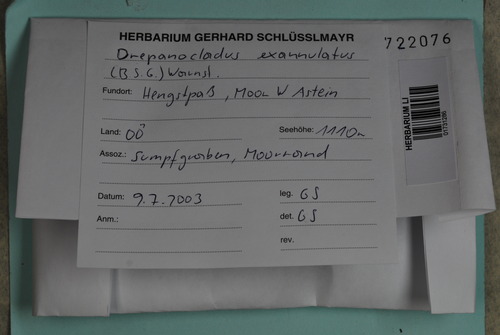 HERBARIUM GERHARD SCHLÜSSLMAYR
722076
Drepanocladus exannulatus
(B.S.G.) Warnst.
Fundort: Hengstpaß, Moor W Astein
HERBARIUM LI
Land: OÖ Seehöhe: 1110m
Assoz.: Sumpfgraben, Moorrand
Datum: 9.7.2003 leg. GS
Anm.: det. GS
rev.